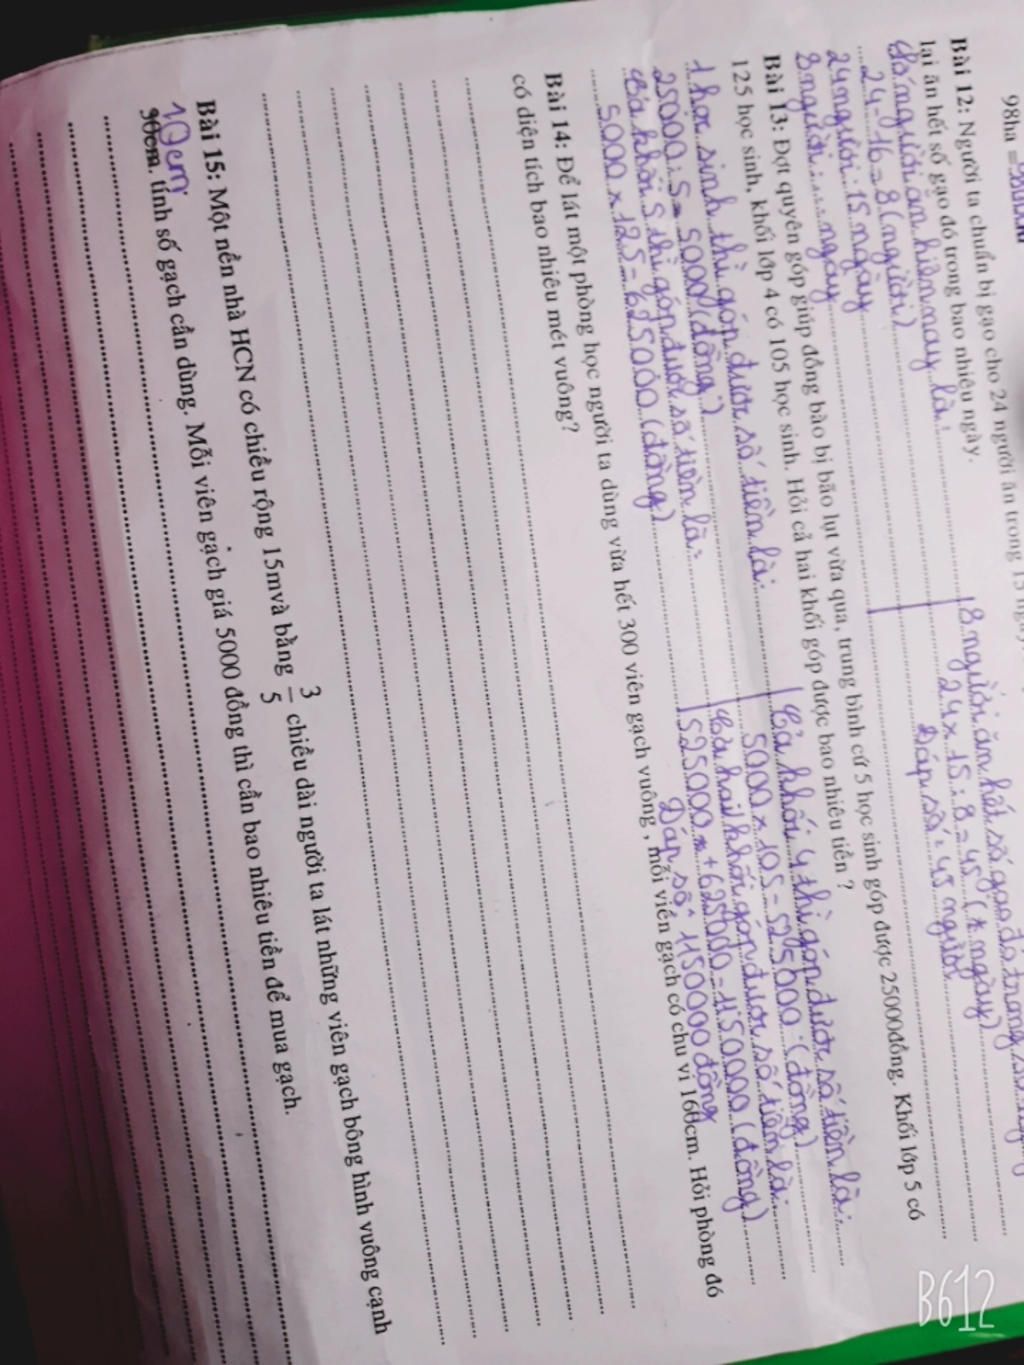 98ha =
Bài 12: Người ta chuẩn bị gạo cho 24 người ăn trong 15
lại ăn hết số gạo đó trong bao nhiêu ngày.
Số người ăn hiện nay là:
24-16=8(người)
24 người: 15 ngày
8 người:.....ngày
8 người ăn hết số gạo đó trong
24 x 15:8=45 (ngày)
Đáp số: 45 người
Bài 13: Đợt quyên góp giúp đồng bào bị bão lụt vừa qua, trung bình cứ 5 học sinh góp được 25000đồng. Khối lớp 5 có
125 học sinh, khối lớp 4 có 105 học sinh. Hỏi cả hai khối góp được bao nhiêu tiền ?
1 học sinh thì góp được số tiền là:
25000:5=5000(đồng)
Cả khối 5 thì góp được số tiền là:
5000 x 125=625000(đồng)
Cả khối 4 thì góp được số tiền là:
5000 x 105=525000 (đồng)
Cả hai khối góp được số tiền là:
525000 + 625000=1150000(đồng)
Đáp số: 1150000 đồng
Bài 14: Để lát một phòng học người ta dùng vừa hết 300 viên gạch vuông , mỗi viên gạch có chu vi 160cm. Hỏi phòng đó
có diện tích bao nhiêu mét vuông?
Bài 15: Một nền nhà HCN có chiều rộng 15mvà bằng 3/5 chiều dài người ta lát những viên gạch bông hình vuông cạnh
10cm
30cm. tính số gạch cần dùng. Mỗi viên gạch giá 5000 đồng thì cần bao nhiêu tiền để mua gạch.
B612